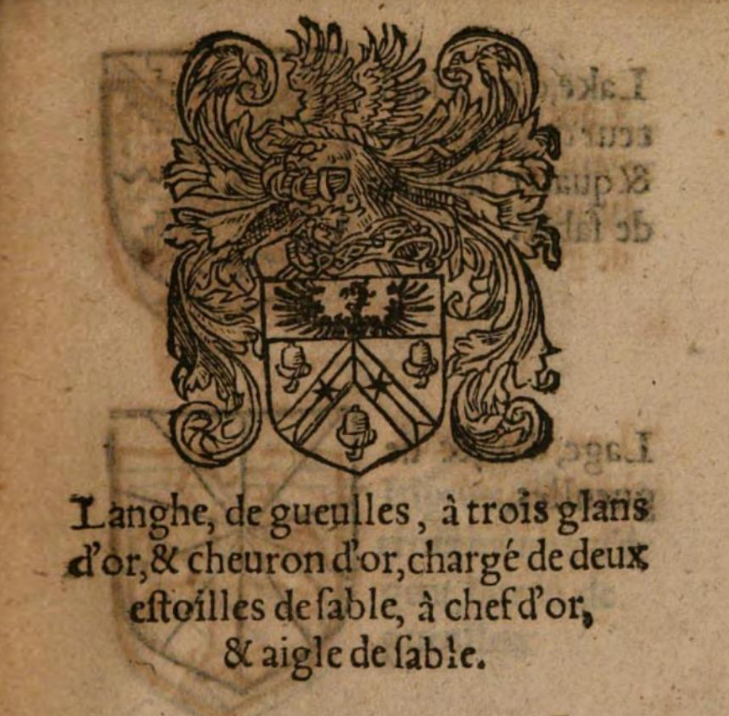 Langhe, de gueulles, à trois glans
d'or, & cheuron d'or, chargé de deux
eſtoilles de ſable, à chef d'or,
& aigle de ſable.